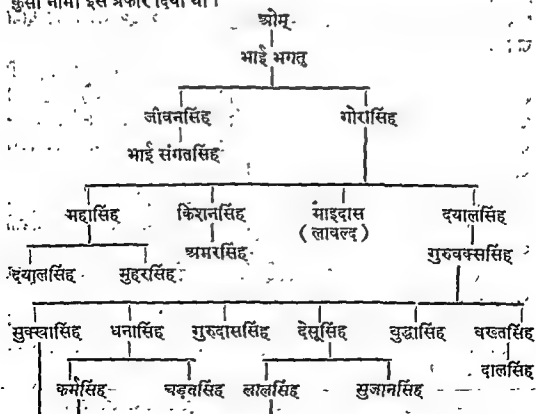 कुर्सी नामा इस प्रकार दिया था।
ओम्
भाई भगतु
जीवनसिंह गोरासिंह
भाई संगतसिंह
महासिंह किशनसिंह माइदास दयालसिंह
(लावल्द)
अमरसिंह गुरुबक्ससिंह
दयालसिंह मुहरसिंह
सुक्खासिंह धनासिंह गुरुदाससिंह देसूसिंह बुद्धासिंह वख्तसिंह
दालसिंह
कर्मसिंह चड़तसिंह लालसिंह सुजानसिंह